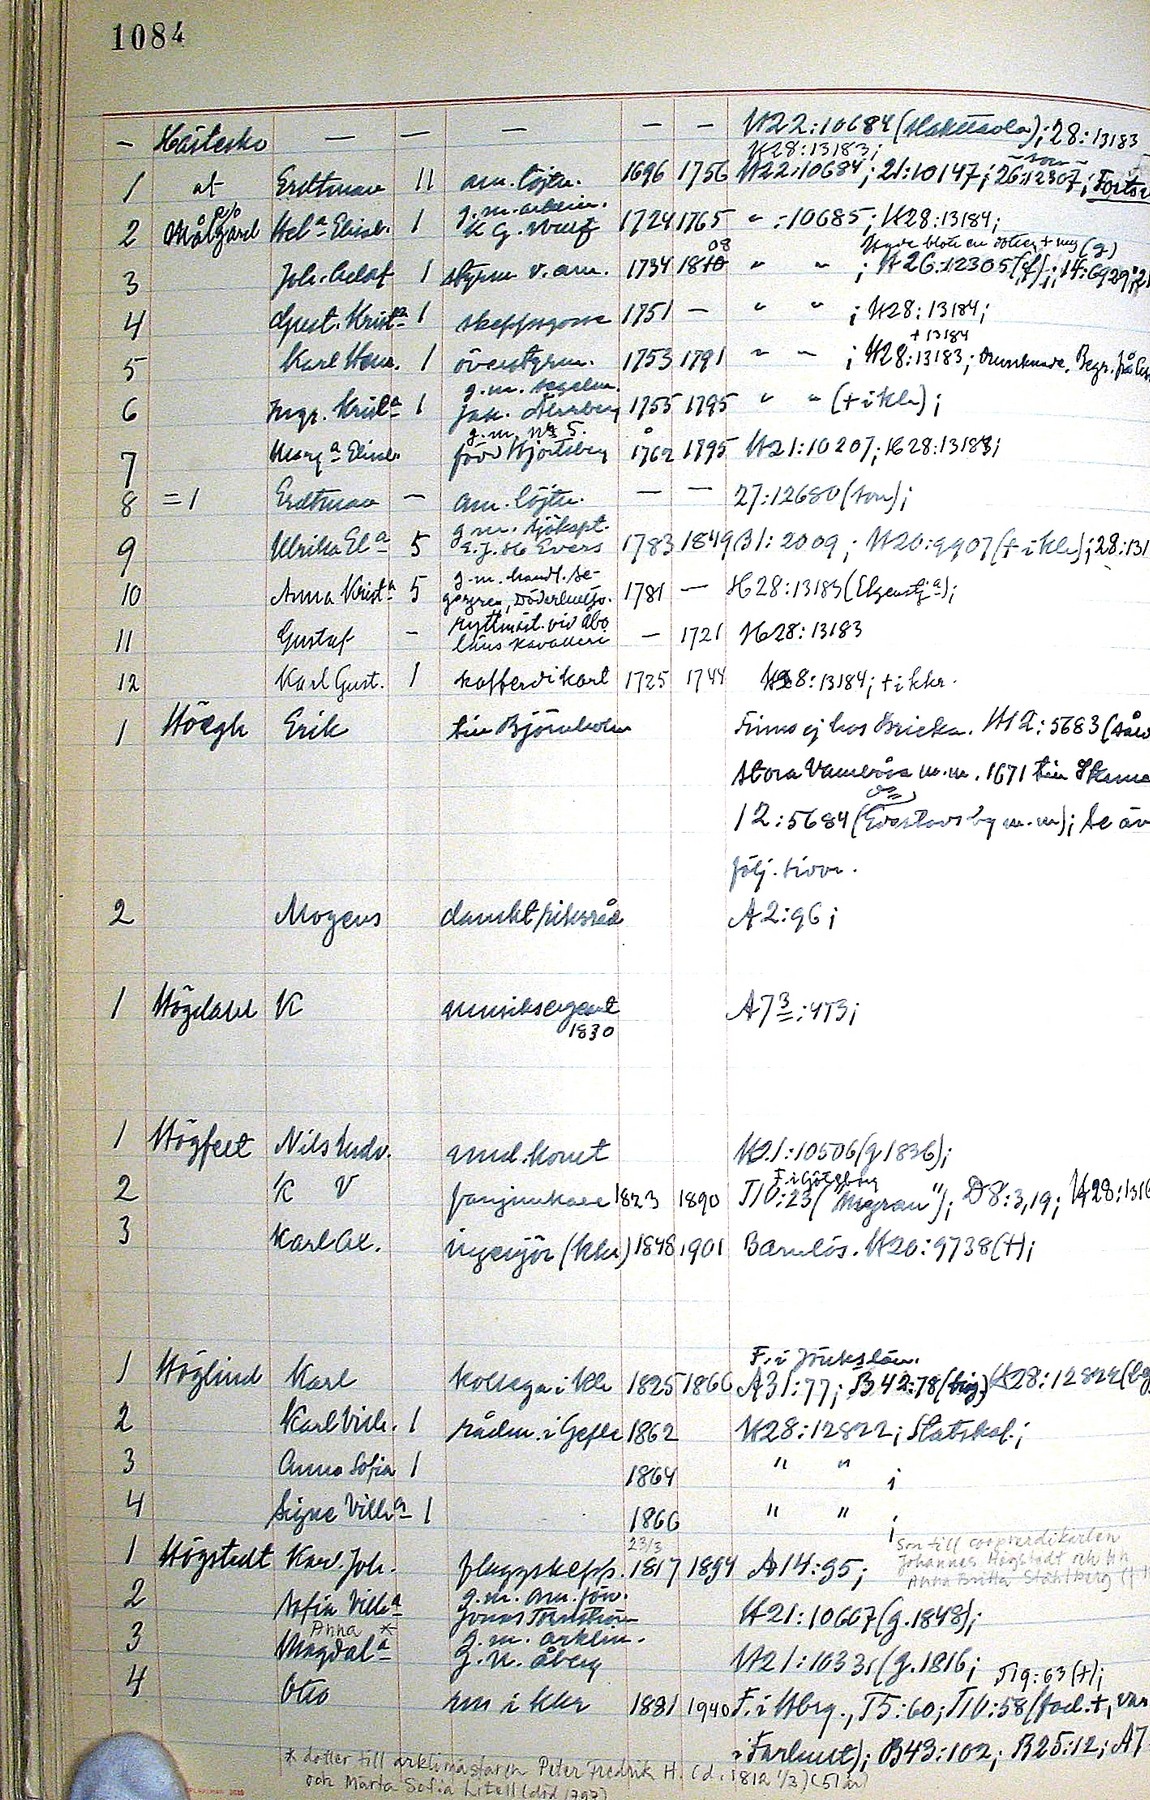 1084
- Hästesko — — — — — H22:10684 (Hakunla); 28:13183
H28:13183;
1 af Erdtman 11 am. löjtn. 1696 1756 H22:10684; 21:10147; 26:12307;
2 Målgård Hel:a Elisab. 1 g. m. arklim. K G. Wulf 1724 1765 " :10685; H28:13184;
08
3 Joh. Adolf 1 styrm v. am. 1734 1810 " " ; H26:12305(f); 14:6929;
4 Gust. Krist:a 1 skeppsgosse 1751 — " " ; H28:13184;
+ 13184
5 Karl Henr. 1 överstyrm. 1753 1791 " " ; H28:13183;
6 Ingr. Krist:a 1 g. m. segelm. Jak. 1755 1795 " " (+ i kkr);
7 Marg:a Elisab. g. m. nr 5. förv Hjortsberg 1762 1795 H21:10207; H28:13183;
8 = 1 Erdtman — am. löjtn. — — 27:12680 (son);
9 Ulrika El:a 5 g. m. sjökapt. E. J. H. Evers 1783 1849 B1: 2009; H20:9907 (+ i kkr); 28:131
10 Anna Krist:a 5 g. m. handl. 1781 — H28:13183
11 Gustaf — ryttmäst. vid Åbo läns kavalleri — 1721 H28:13183
12 Karl Gust. 1 kofferdikarl 1725 1744 H28:13184; + i kkr.
1 Höegh Erik till Björnholm Finns ej hos Bricka. H12:5683
Stora m. m. 1671 till
12:5684 ( m. m); Se äv
följ. tvvr.
2 Mogens danskt riksråd A2:96;
1 Högdahl K musiksergeant A7 3:473;
1830
1 Högfelt Nils Ludv. amd. konst H21:10506 (g 1836);
F. i Göteborg
2 K V fanjunkare 1823 1890 T10:23 ("Migran"); D8:3,19; H28:1316
3 Karl Al. ingenjör (kkr) 1848 1901 Barnlös. H20:9738 (+);
F. i Jönk.s län.
1 Höglind Karl kollega i kkr 1825 1866 A31:77; B42:78 (biogr) H28:12822
2 Karl Vilh. 1 rådm. i Gefle 1862 H28:12822; Statskal.;
3 Anna Sofia 1 1864 " " ;
4 Signe Vilh:a 1 1866 " " ;
23/3 Son till coopverdikarlen
1 Högstedt Karl Joh. flaggskepp. 1817 1894 A14:95; Johannes Högstedt och hh
Anna Britta Ståhlberg
2 Sofia Vilh:a g. m. am. förv. Jonas Törnström H21:10607 (g. 1848);
Anna *
3 Magdal:a g. m. arklim. G. N. Åberg H21:10331 (g. 1816;
T19:63 (+);
4 Otto un i kkr 1881 1940 F. i Hbrg., T5:60; T10:58 (föd. +, var
i Farhult); B43:102; B25:12; A7
* dotter till arklimästaren Peter Fredrik H. (d. 1812 1/3) (51 år)
och Märta Sofia Litell (död 1797)